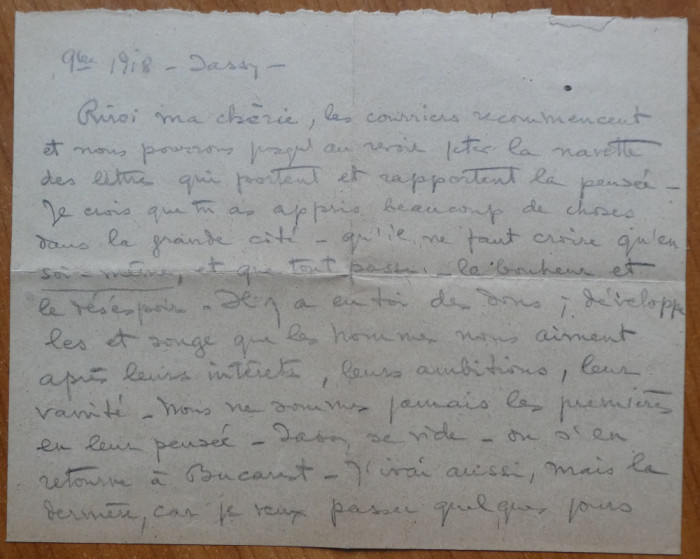 9bre 1918 - Jassy -
ma chérie, les courriers recommencent
et nous pourrons jusqu'au revoir jeter la navette
des lettres qui portent et rapportent la pensée -
Je crois que tu as appris beaucoup de choses
dans la grande cité - qu'il ne faut croire qu'en
soi-même, et que tout passe, - le bonheur et
le désespoir - Il y a en toi des dons ; développe
les et songe que les hommes nous aiment
après leurs intérêts, leurs ambitions, leur
vanité - Nous ne sommes jamais les premières
en leur pensée - Jassy se vide - on s'en
retourne à Bucarest - J'irai aussi, mais la
dernière, car je veux passer quelques jours